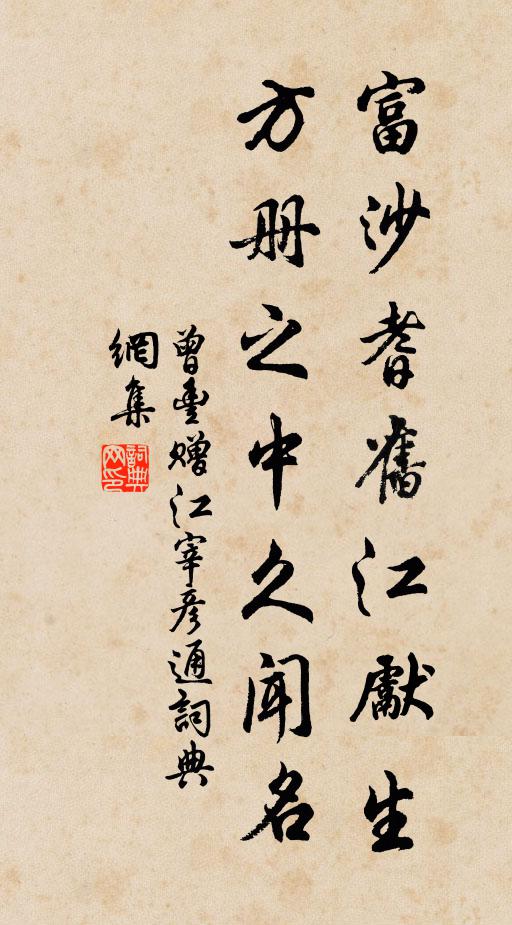 富沙耆舊江獻生
方册之中久闻名
曾豐赠江宰彦通詞典
網集
詞典网印